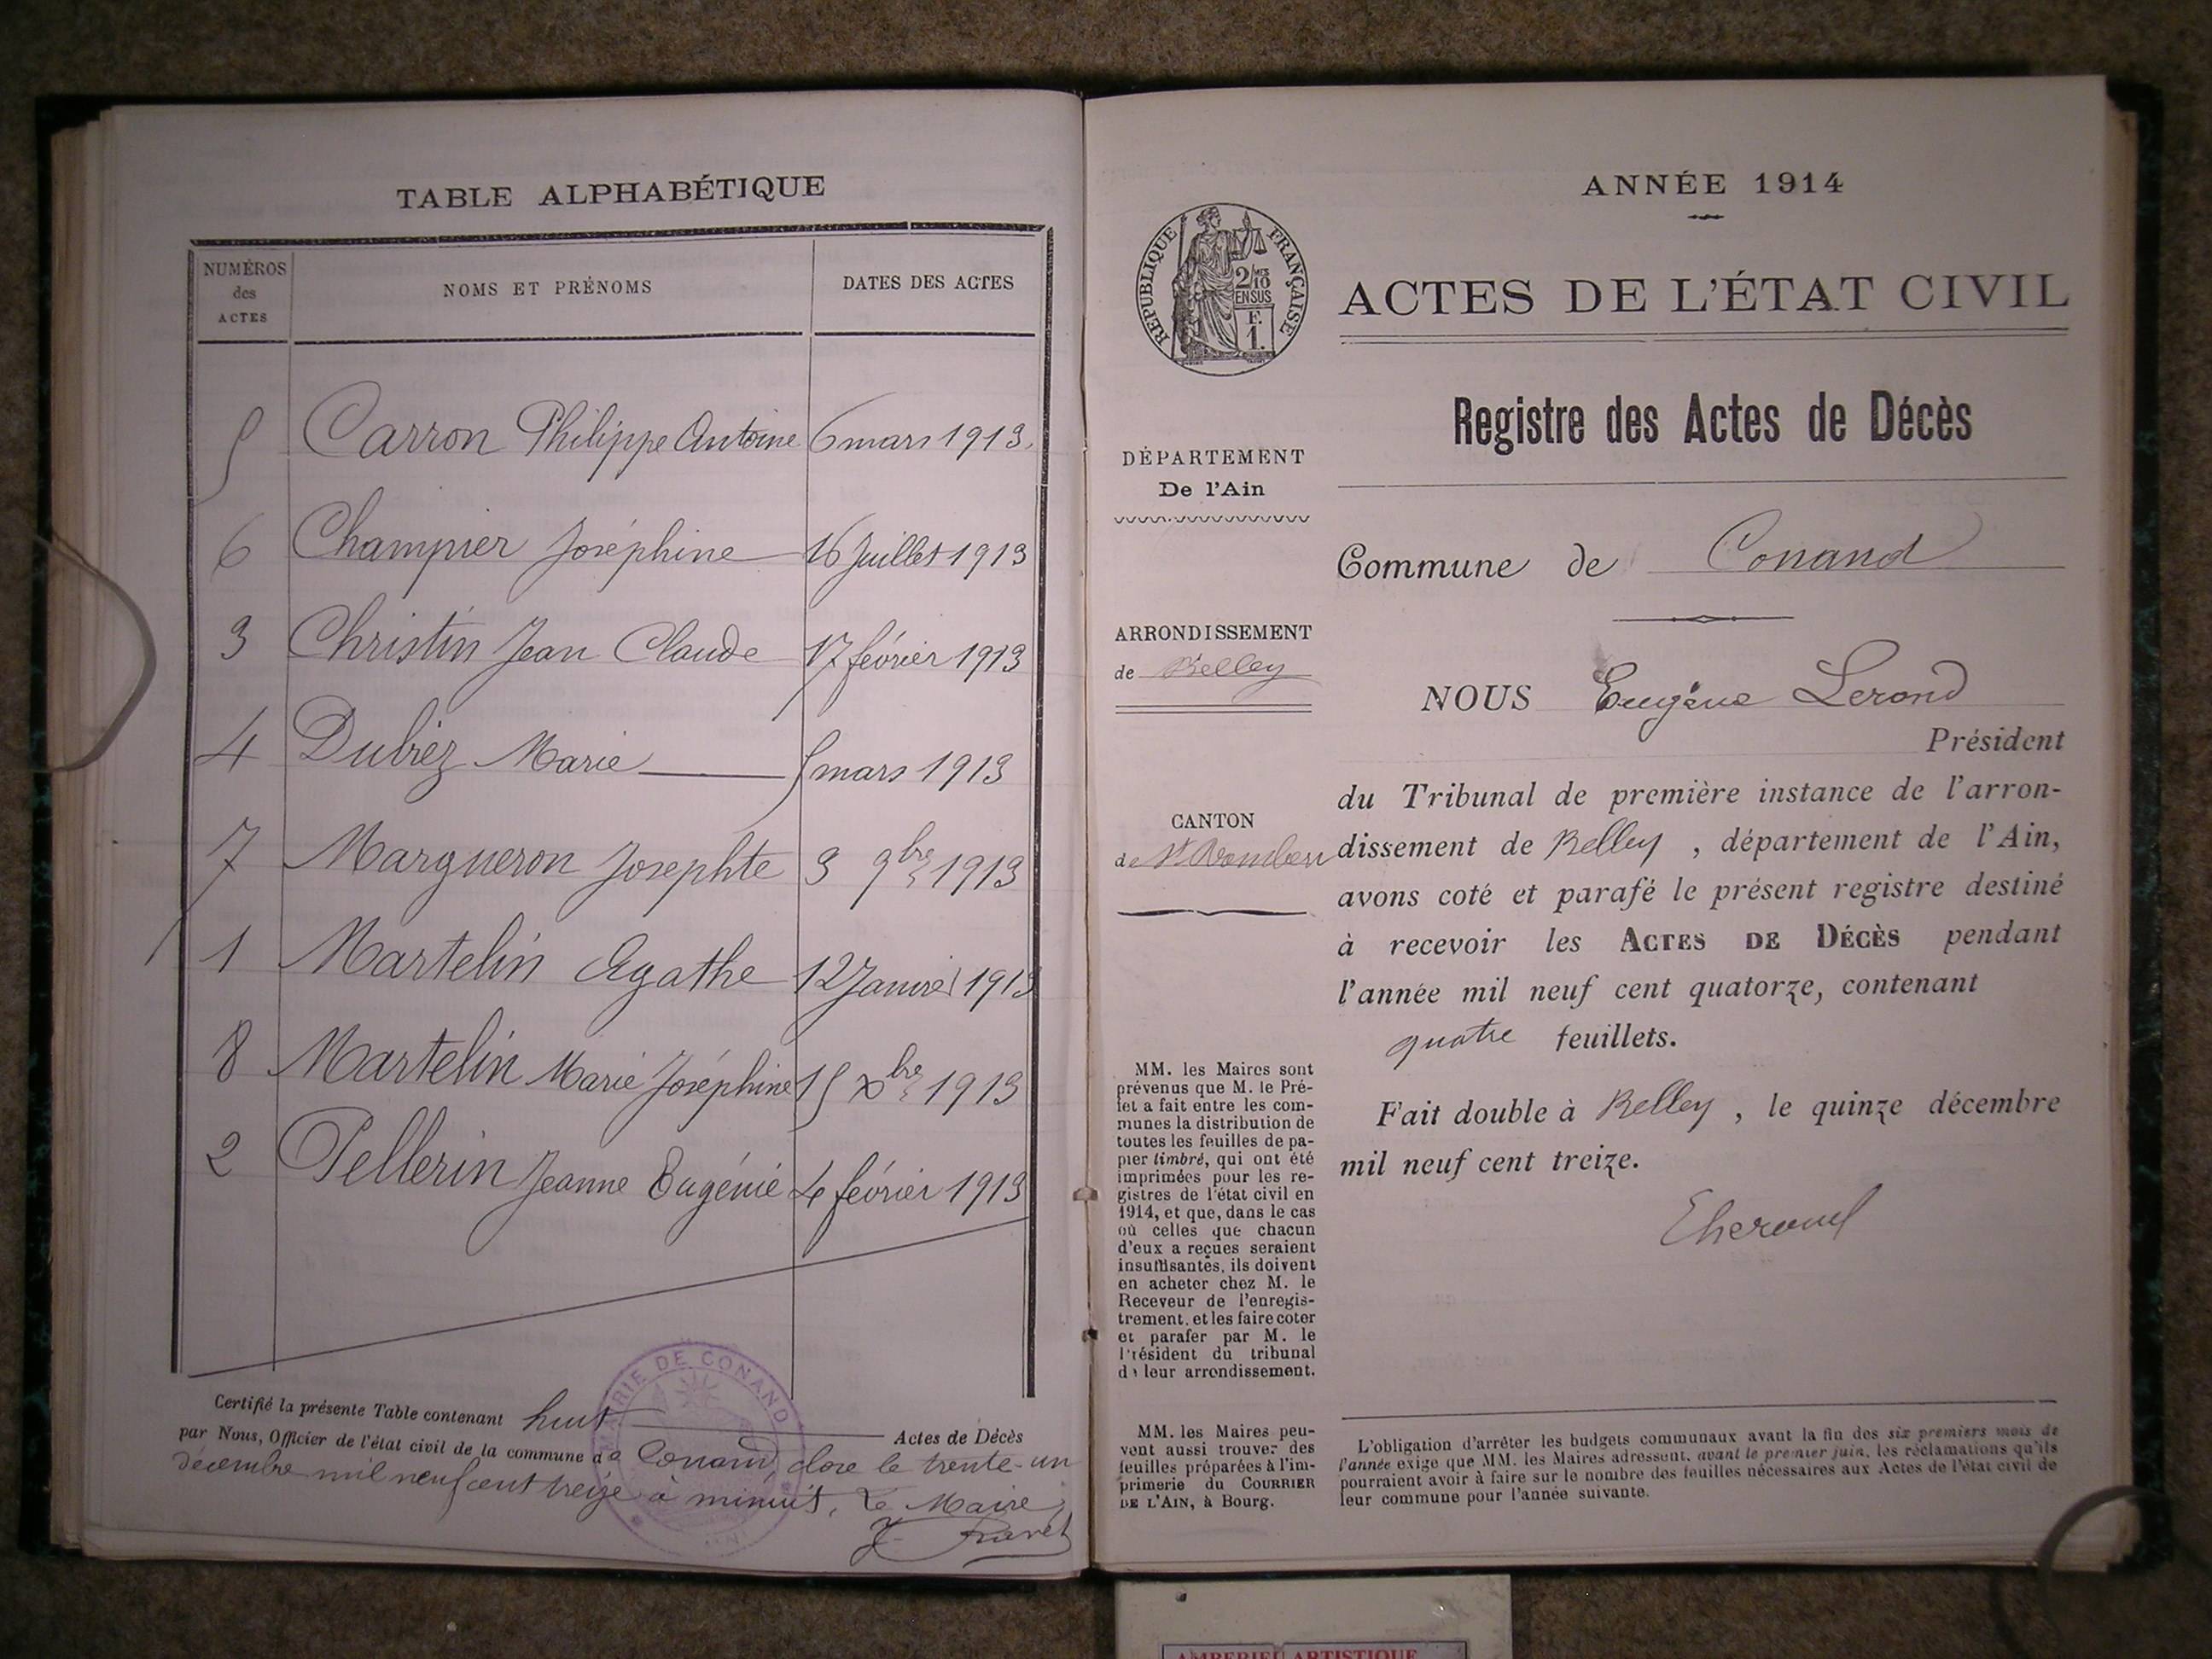 TABLE ALPHABÉTIQUE
NUMÉROS des ACTES NOMS ET PRÉNOMS DATES DES ACTES
5 Carron Philippe Antoine 6 mars 1913.
6 Champier Joséphine 16 Juillet 1913
3 Christin Jean Claude 17 février 1913
4 Dubiez Marie 5 mars 1913
7 Margueron Josephte 3 9bre 1913
1 Martelin Agathe 12 Janvier 1913
8 Martelin Marie Joséphine 15 Xbre 1913
2 Pellerin Jeanne Eugénie 4 février 1913
Certifié la présente Table contenant huit Actes de Décès
par Nous, Officier de l'état civil de la commune de Conand, close le trente-un
décembre mil neuf cent treize à minuit. Le Maire,
MAIRIE DE CONAND
ANNÉE 1914
RÉPUBLIQUE FRANÇAISE
2/10MES
EN SUS
F.
1.
ACTES DE L'ÉTAT CIVIL
Registre des Actes de Décès
DÉPARTEMENT
De l'Ain
Commune de Conand
ARRONDISSEMENT
de Belley
NOUS Eugène Lerond
Président
CANTON
de St Rambert
du Tribunal de première instance de l'arron-
dissement de Belley, département de l'Ain,
avons coté et parafé le présent registre destiné
à recevoir les ACTES DE DÉCÈS pendant
l'année mil neuf cent quatorze, contenant
quatre feuillets.
Fait double à Belley, le quinze décembre
mil neuf cent treize.
MM. les Maires sont
prévenus que M. le Pré-
fet a fait entre les com-
munes la distribution de
toutes les feuilles de pa-
pier timbré, qui ont été
imprimées pour les re-
gistres de l'état civil en
1914, et que, dans le cas
où celles que chacun
d'eux a reçues seraient
insuffisantes, ils doivent
en acheter chez M. le
Receveur de l'enregis-
trement, et les faire coter
et parafer par M. le
Président du tribunal
de leur arrondissement.
MM. les Maires peu-
vent aussi trouver des
feuilles préparées à l'im-
primerie du COURRIER
DE L'AIN, à Bourg.
L'obligation d'arrêter les budgets communaux avant la fin des six premiers mois de
l'année exige que MM. les Maires adressent, avant le premier juin, les réclamations qu'ils
pourraient avoir à faire sur le nombre des feuilles nécessaires aux Actes de l'état civil de
leur commune pour l'année suivante.
AMBERIEU ARTISTIQUE